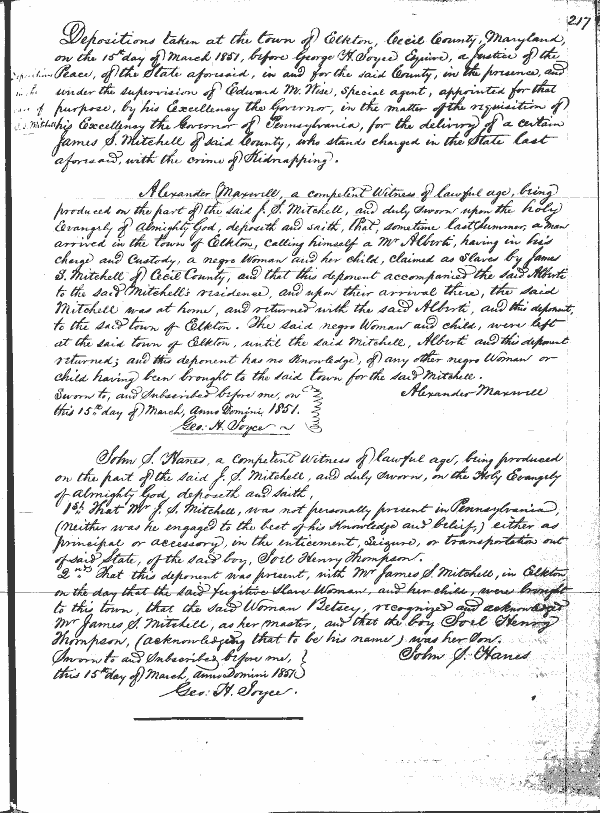 217
Depositions taken at the town of Elkton, Cecil County, Maryland,
on the 15th day of March 1851, before George H. Joyce Esquire, a Justice of the
Peace, of the State aforesaid, in and for the said County, in the presence, and
under the supervision of Edward M. Wise, Special agent, appointed for that
purpose, by his Excellency the Governor, in the matter of the requisition of
his Excellency the Governor of Pennsylvania, for the delivery of a certain
James S. Mitchell of said County, who stands charged in the State last
aforsaid, with the crime of Kidnapping.
Depositions
in the
case of
J. S. Mitchell
Alexander Maxwell, a competent Witness of lawful age, being
produced on the part of the said J. S. Mitchell, and duly sworn upon the holy
Evangely of Almighty God, deposith and saith, that, sometime last Summer, a man
arrived in the town of Elkton, calling himself a Mr Alberti, having in his
charge and Custody, a negro Woman and her child, claimed as Slaves by James
S. Mitchell of Cecil County, and that this deponent accompanied the said Alberti
to the said Mitchell's residence, and upon their arrival there, the said
Mitchell was at home, and returned with the said Alberti, and this deponent,
to the said town of Elkton. The said negro Woman and child, were left
at the said town of Elkton, until the said Mitchell, Alberti and this deponent
returned; and this deponent has no Knowledge, of any other negro Woman or
child having been brought to the said town for the said Mitchell.
Sworn to, and Subscribed before me, on
Alexander Maxwell
this 15th day of March, Anno Domini 1851.
Geo: H. Joyce
John S. Hanes, a competent Witness of lawful age, being produced
on the part of the said J. S. Mitchell, and duly sworn, on the Holy Evangely
of Almighty God, deposeth and saith,
1st That Mr J. S. Mitchell, was not personally present in Pennsylvania,
(neither was he engaged to the best of his Knowledge and belief,) either as
principal or accessory, in the enticement, Seizure, or transportation out
of said State, of the said boy, Joel Henry Thompson.
2nd That this deponent was present, with Mr James S. Mitchell, in Elkton,
on the day that the said fugitive Slave Woman, and her child, were brought
to this town, that the said Woman Betsey, recognized and acknowledged
Mr James S. Mitchell, as her master, and that the boy Joel Henry
Thompson, (acknowledging that to be his name) was her Son.
Sworn to and Subscribed before me,
John S. Hanes
this 15th day of March, Anno Domini 1851
Geo: H. Joyce.